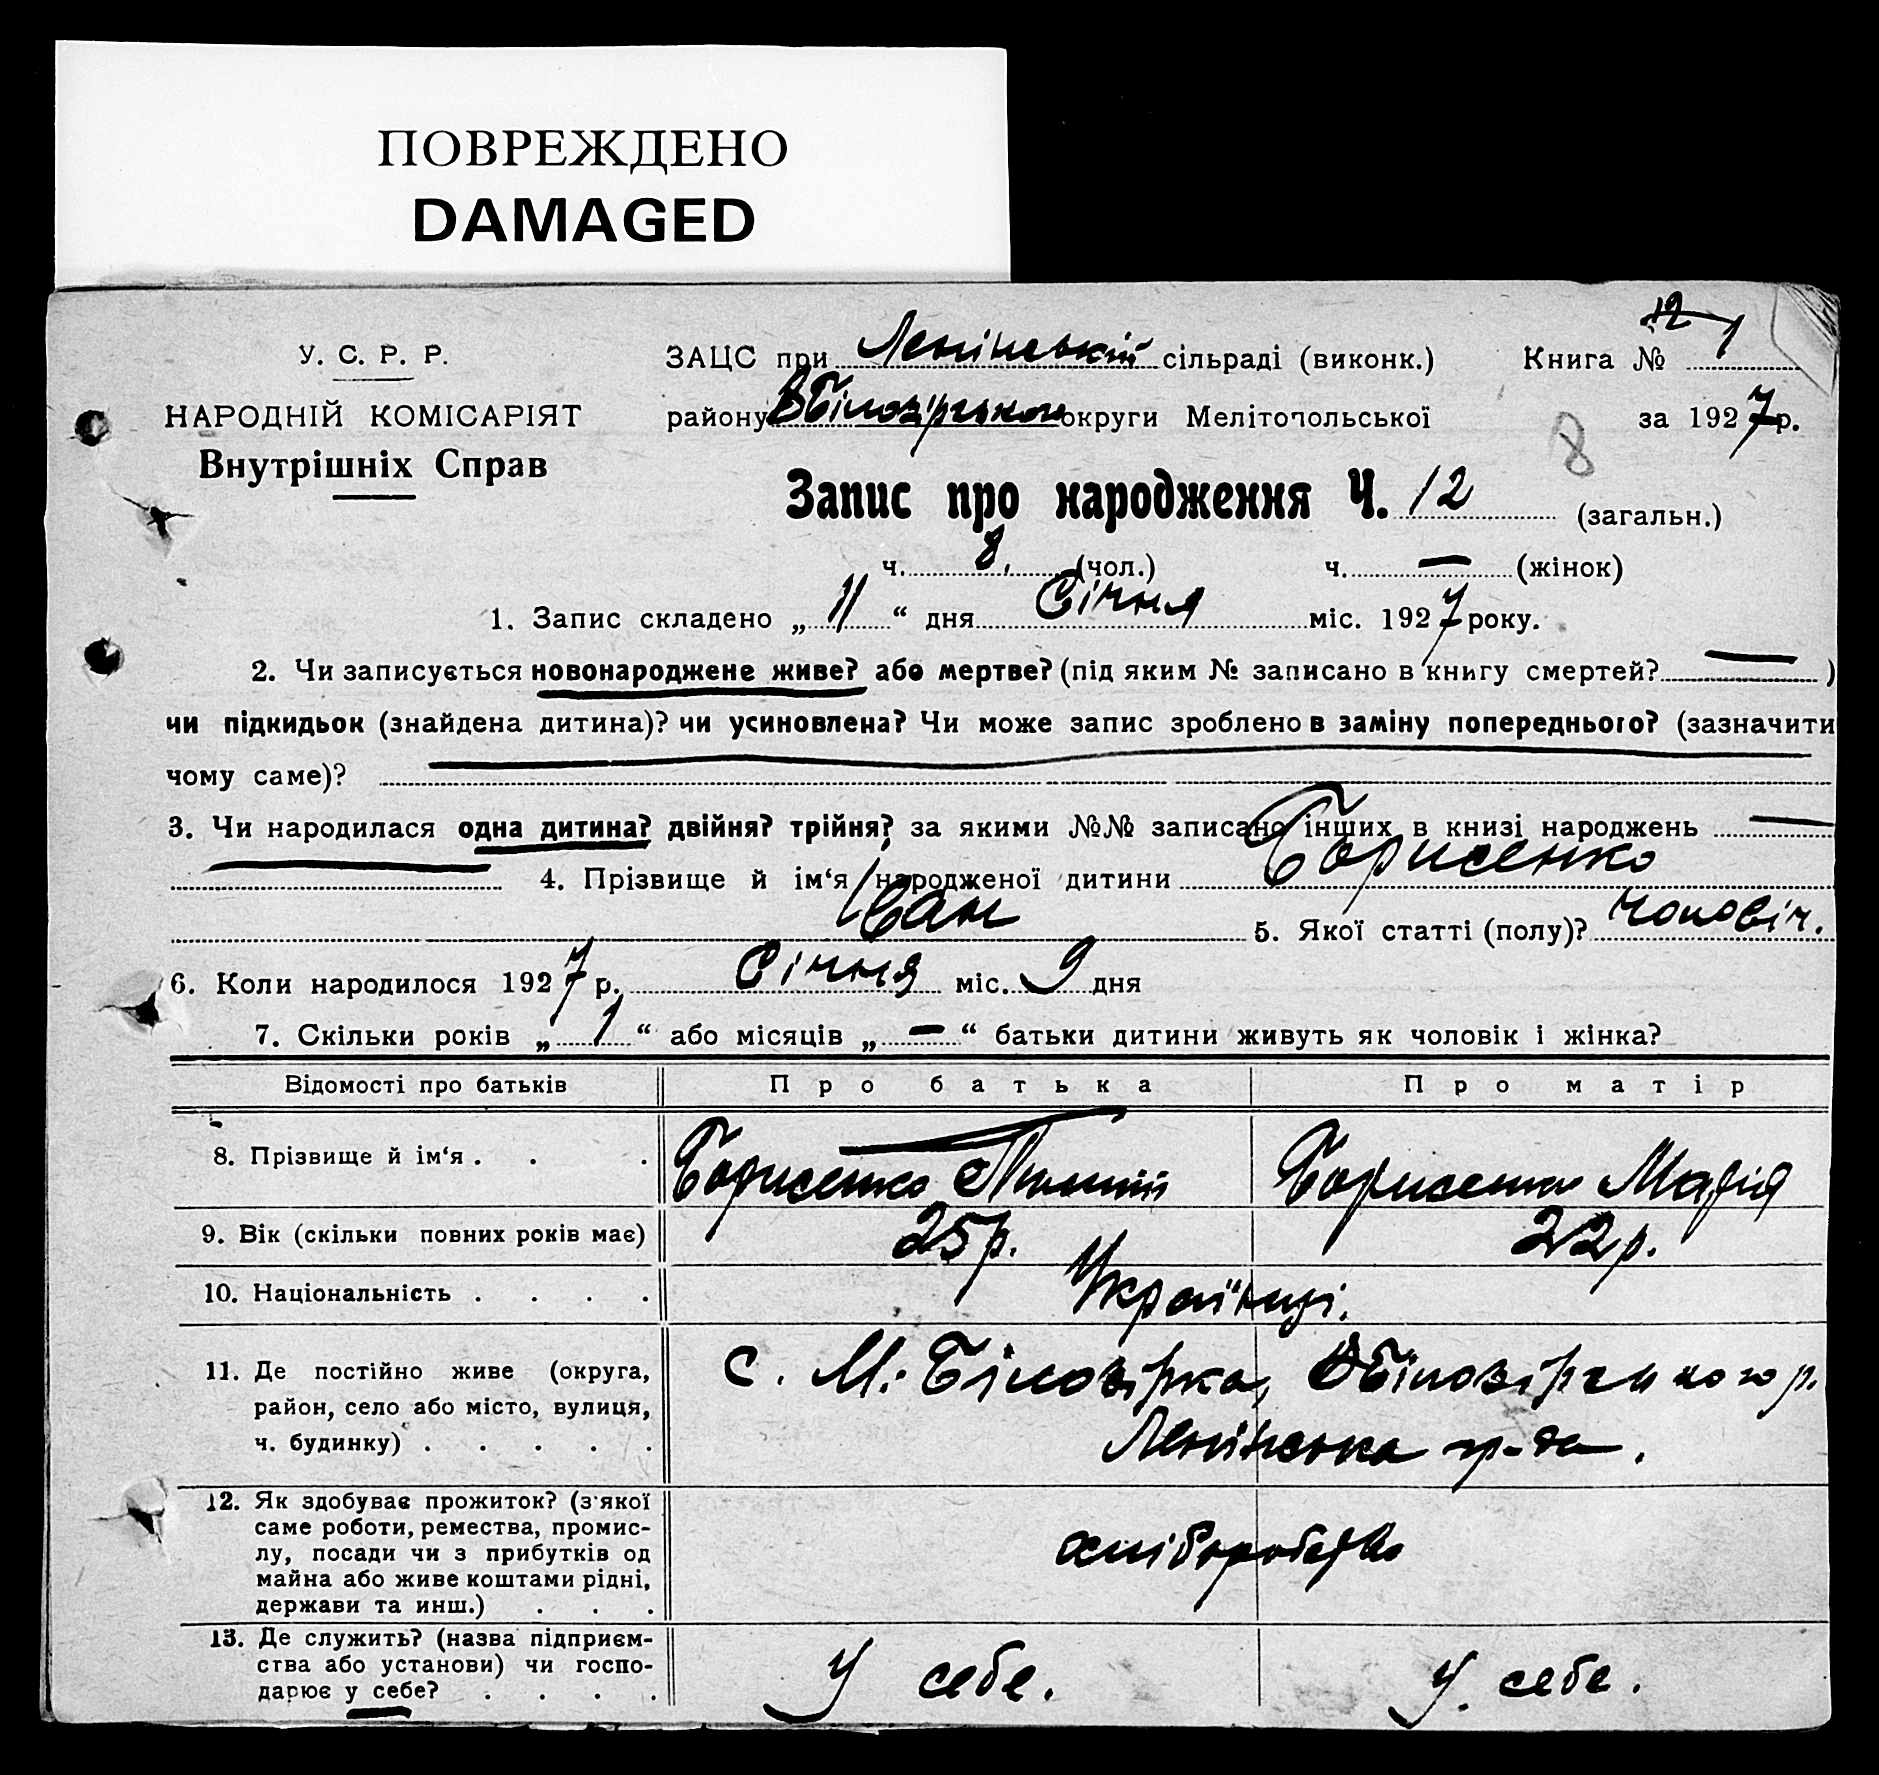 ПОВРЕЖДЕНО
DAMAGED
12 1
У. С. Р. Р.
ЗАЦС при Ленінській сільраді (виконк.) Книга №
НАРОДНІЙ КОМІСАРІЯТ
Внутрішніх Справ
району округи Мелітопольської за 1927 р.
8
Запис про народження Ч. 12 (загальн.)
ч. 8, (чол.) ч. — (жінок)
1. Запис складено „ 11 “ дня Січня міс. 1927 року.
2. Чи записується новонароджене живе? або мертве? (під яким № записано в книгу смертей? — )
чи підкидьок (знайдена дитина)? чи усиновлена? Чи може запис зроблено в заміну попереднього? (зазначити
чому саме)?
3. Чи народилася одна дитина? двійня? трійня? за якими №№ записано інших в книзі народжень —
4. Прізвище й ім‘я народженої дитини Борисенко
Іван 5. Якої статті (полу)? чоловіч.
6. Коли народилося 1927 р. Січня міс. 9 дня
7. Скільки років „ 1 “ або місяців „ — “ батьки дитини живуть як чоловік і жінка?
Відомості про батьків Про батька Про матір
8. Прізвище й ім‘я . . . Борисенко Борисенко Марія
9. Вік (скільки повних років має) 25 р. 22 р.
10. Національність . . . . Українці.
11. Де постійно живе (округа,
район, село або місто, вулиця,
ч. будинку) . . . . .
с. М. Білозірка,
Ленінська
12. Як здобуває прожиток? (з якої
саме роботи, ремества, промис-
лу, посади чи з прибутків од
майна або живе коштами рідні,
держави та инш.) . . .
хліборобство
13. Де служить? (назва підприєм-
ства або установи) чи госпо-
дарює у себе? . . . .
У себе. У себе.